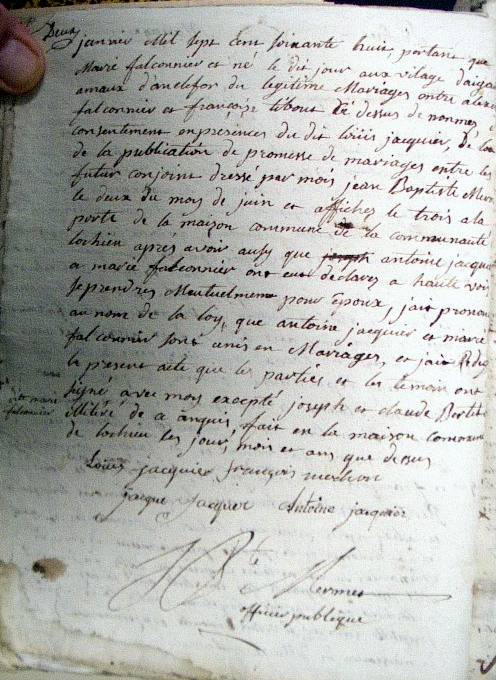 Deux
janvier Mil sept Cent soixante huit, portant que
Marie falconnier et né le dit jour aux vilage d'aiga
amaux d'andefor du legitime Mariages entre alexi
falconnier et françoise tibout Dé dessus de nonmés
Consentement en présences du dit loüis jacquier, De
de la publication de promesse de mariages entre les
futur conjoint dresse par mois jean Baptiste Mer
le deux du mois de juin et affichez le trois a la
porte de la maison commune de la communauté
lochieu apres avoir ausy que joseph antoine jacquie
a marie falconnier ont eut déclarez a haute voix
se prendres Mutuelment pour Epoux, j'ait pronon
au nom de la loy, que antoine jacquier et marie
falconnier sont unis en Mariages, et jait Rédig
le present acte que les parties et les temoin ont
signé avec mois excepté joseph et claude Bertet
dite marie
falconnier
illitiré de a enquis, fait en la maison commune
de lochieu les jour, mois et ans que dessus
Louis jacquier françois merlion
jacque Jacquer Antoine jacquier
J B te Mermet
officier publique